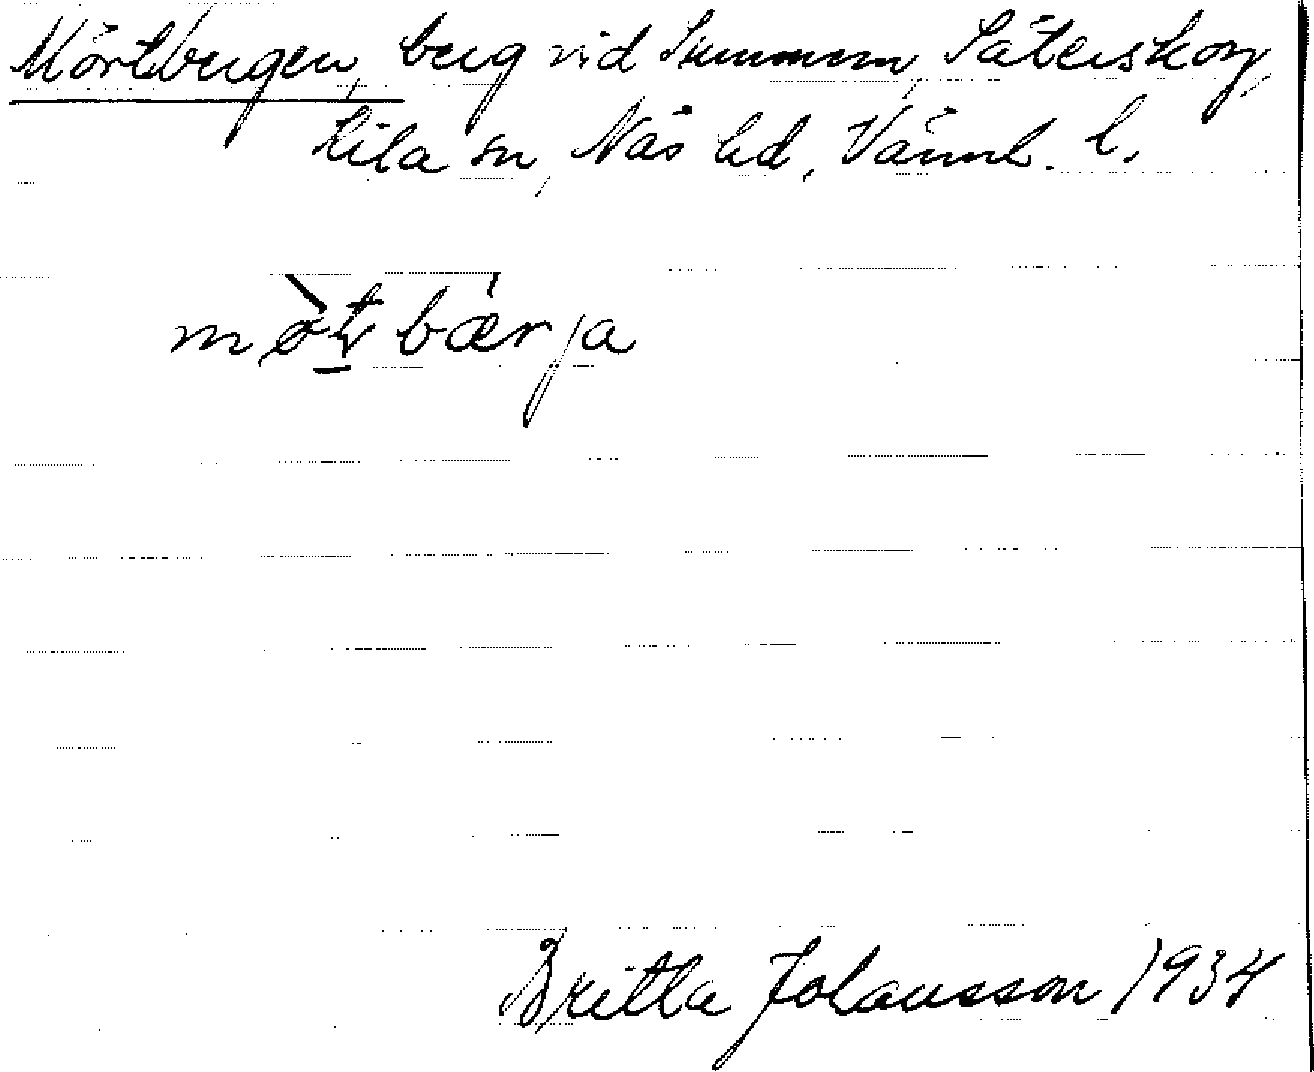 Mörtbergen, berg vid Summeln, Säterskog,
Kila sn, Näs hd, Värml. l.
mø̀t bærja
Britta Johansson 1934